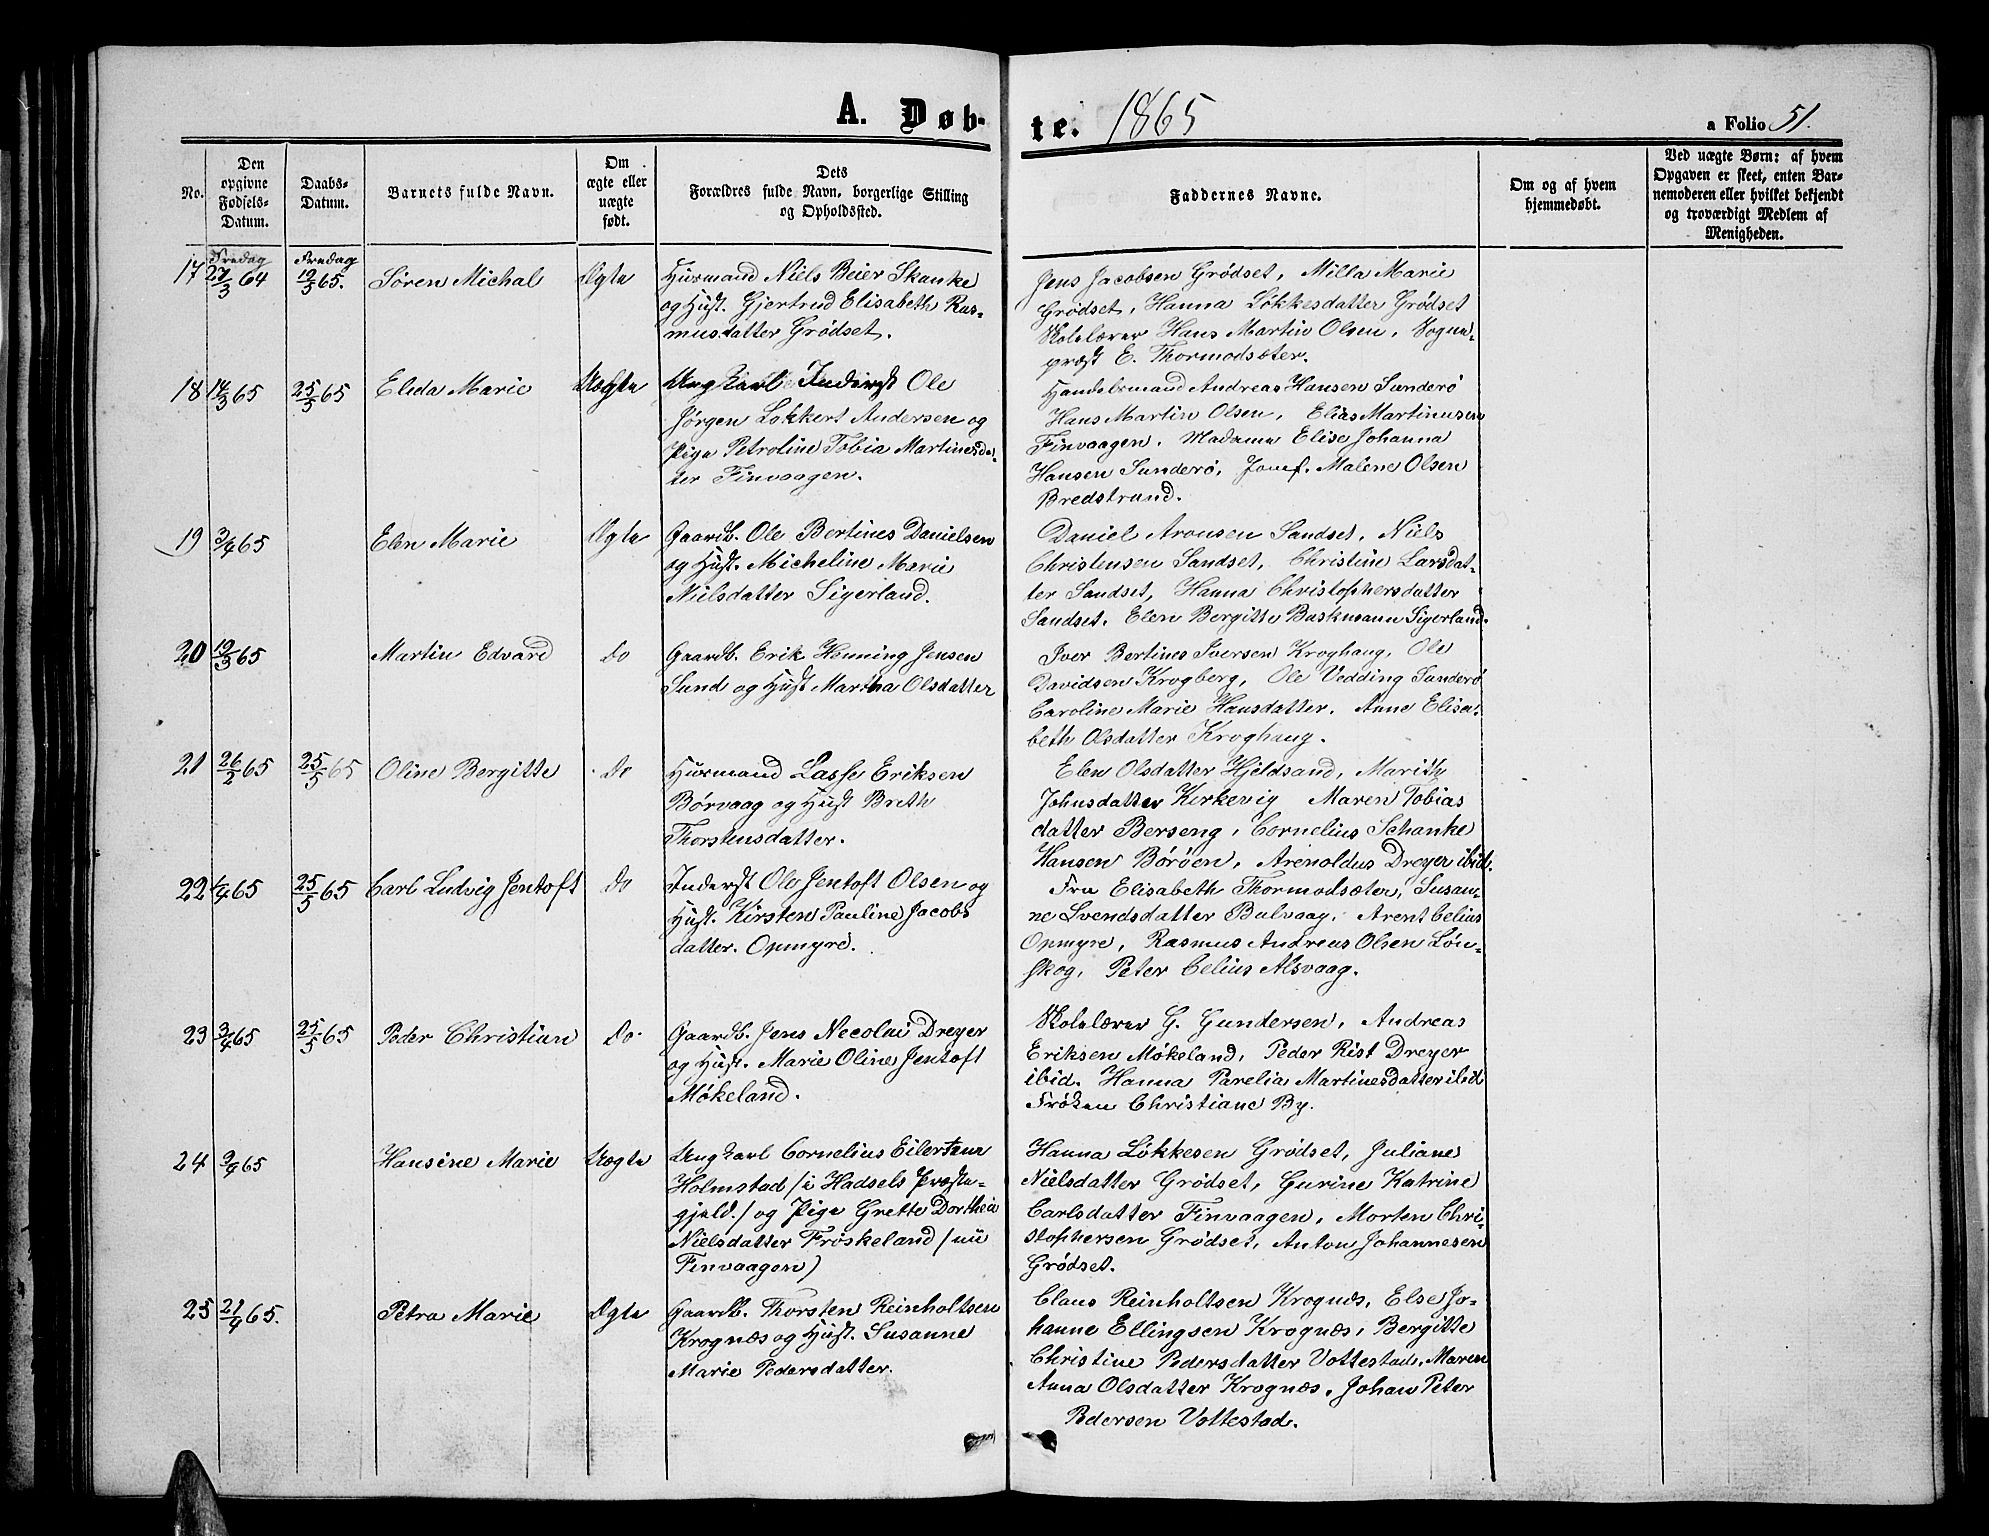 A. Døb-
te. 1865
a Folio 51.
No.
Den opgivne Fødsels-Datum.
Daabs-Datum.
Barnets fulde Navn.
Om ægte eller uægte født.
Dets
Forældres fulde Navn, borgerlige Stilling
og Opholdssted.
Faddernes Navne.
Om og af hvem
hjemmedøbt.
Ved uægte Børn: af hvem
Opgaven er skeet, enten Bar-
nemoderen eller hvilket bekjendt
og troværdigt Medlem af
Menigheden.
Fredag Fredag
17 27/3 64 19/5 65. Søren Michal Ægte
Huusmand Niels Beier Skanke
og Hust. Gjertrud Elisabeth Ras-
musdatter Grødset.
Jens Jacobsen Grødset, Milla Marie
Grødset, Hanna Løkkesdatter Grødset
Skolelærer Hans Martin Olsen, Sogne-
præst E. Thormodsæter.
18 14/3 65 25/5 65 Elida Marie Uægte
Ungkarl Inderst Ole
Jørgen Lokkert Andersen og
Pige Petroline Tobia Martinesda-
ter Finvaagen.
Handelsmand Andreas Hansen Sunderö
Hans Martin Olsen, Elias Martinusen
Finvaagen. Madame Elise Johanna
Hansen Sunderö, Jomf. Malene Olsen
Bredstrand.
19 3/4 65 Elen Marie Ægte
Gaardb. Ole Bertines Danielsen
og Hust. Micheline Marie
Nielsdatter Sigerland.
Daniel Aronsen Sandset, Niels
Christensen Sandset, Christine Larsdat-
ter Sandset, Hanna Christophersdatter
Sandset. Elen Bergitte Buskmann Sigerland.
20 19/3 65 Martin Edvard Do
Gaardb. Erik Henning Jensen
Sund og Hust Martha Olsdatter
Iver Bertines Iversen Kroghaug, Ole
Davidsen Krogberg, Ole Vedding Sunderö
Caroline Marie Hansdatter. Anne Elisa-
beth Olsdatter Kroghaug.
21 26/2 65 25/5 65 Oline Bergitte Do
Huusmand Lasse Eriksen
Børvaag og Hust Breth
Thorstensdatter.
Elen Olsdatter Hjeldsand, Marith
Johnsdatter Kirkevig Maren Tobias
datter Berseng, Cornelius Schanke
Hansen Böröen, Arenoldus Dreyer ibid.
22 1/4 65 25/5 65 Carl Ludvig Jentoft Do
Inderst Ole Jentoft Olsen og
Hust. Kirsten Pauline Jacobs
datter. Opmyre.
Fru Elisabeth Thormodsæter, Susan-
ne Svendsdatter Balvaag, Arent Celius
Opmyre, Rasmus Andreas Olsen Løn-
skog, Peter Celius Alsvaag.
23 3/4 65 25/5 65 Peder Christian Do
Gaardb. Jens Necolai Dreyer
og Hust. Marie Oline Jentoft
Møkeland.
Skolelærer G. Gundersen, Andreas
Eriksen Møkeland, Peder Rist Dreyer
ibid. Hanna Parelia Martinesdatter ibid
Frøken Christiane By.
24 9/4 65 Hansine Marie Uægte
Ungkarl Cornelius Eilertsen
Holmstad /i Hadsels Præste-
gjeld./ og Pige Grette Dorthea
Nielsdatter Frøskeland /nu
Finvaagen)
Hanna Løkkesen Grødset, Juliane
Nielsdatter Grødset, Gurine Katrine
Carlsdatter Finvaagen, Morten Chri-
stophersen Grødset, Anton Johannesen
Grødset.
25 21/4 65. Petra Marie Ægte
Gaardb. Thorsten Reinholtsen
Krognæs og Hust. Susanne
Marie Pedersdatter.
Claus Reinholtsen Krognæs, Else Jo-
hanne Ellingsen Krognæs, Bergitte
Christine Pedersdatter Vottestad, Maren
Anna Olsdatter Krognæs, Johan Peter
Pedersen Vottestad.